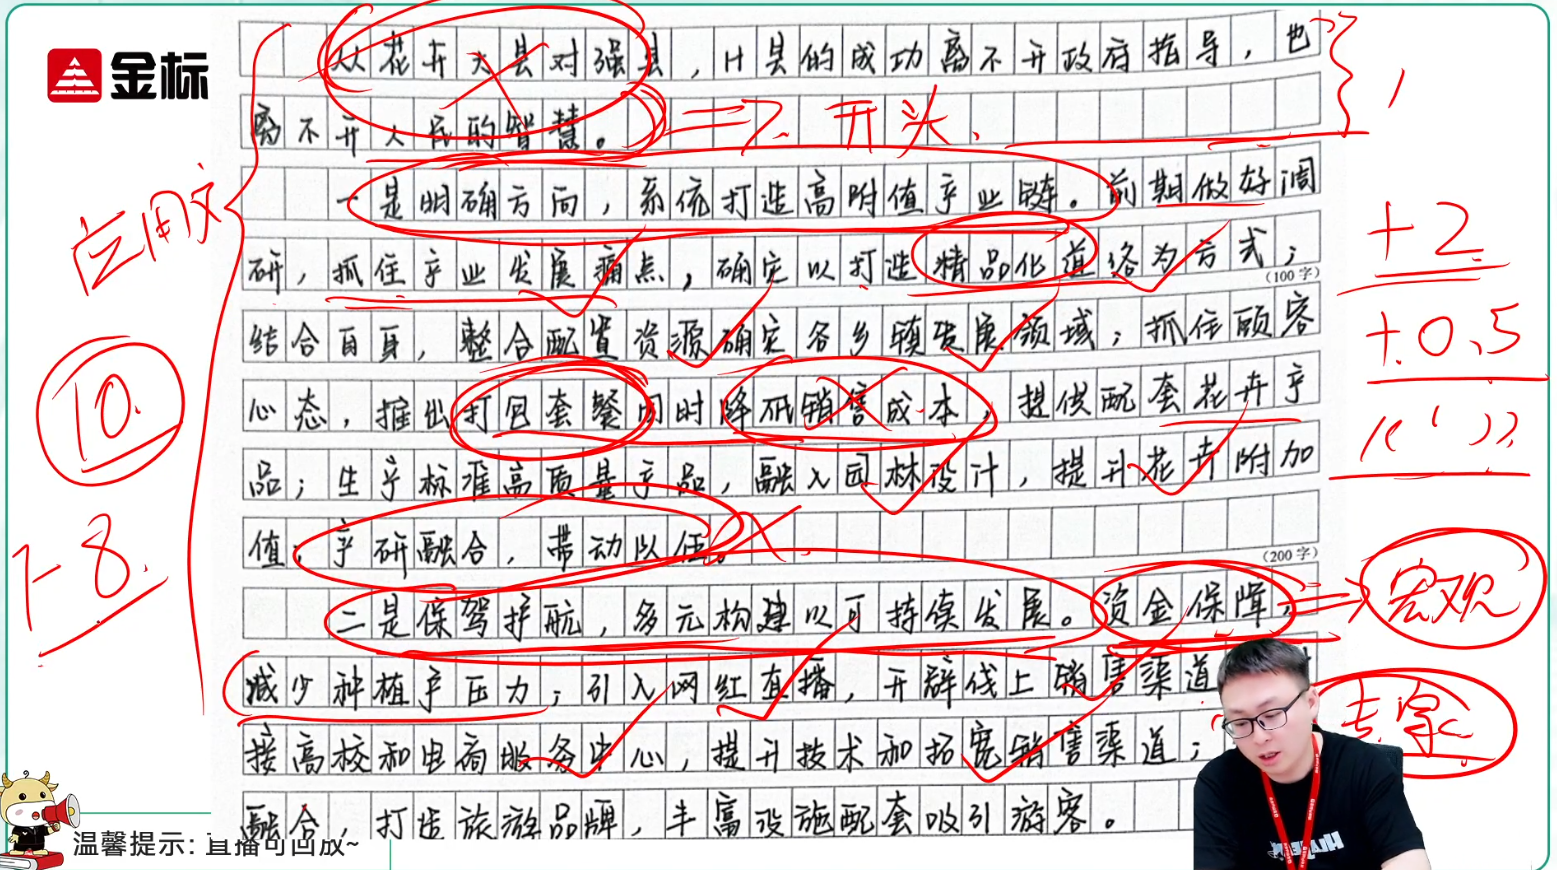 金标
从花卉大县对强县，H县的成功离不开政府指导，也
离不开人民的智慧。
7. 开头.
一是明确方向，系统打造高附值产业链。前期做好调
研，抓住产业发展痛点，确定以打造精品化道络为方式；
（100字）
结合自身，整合配置资源确定各乡镇发展领域；抓住顾客
心态，推出打包套餐同时降低销售成本，提供配套花卉产
品；生产标准高质量产品，融入园林设计，提升花卉附加
值；产研融合，带动以伍。
（200字）
二是保驾护航，多元构建以可持续发展。资金保障，
减少种植户压力；引入网红直播，开辟线上销售渠道
接高校和电商服务中心，提升技术和拓宽销售渠道；
融合，打造旅游品牌，丰富设施配套吸引游客。
应用文
10.
7-8.
+2
+0.5
宏观
专家
温馨提示：直播可回放~